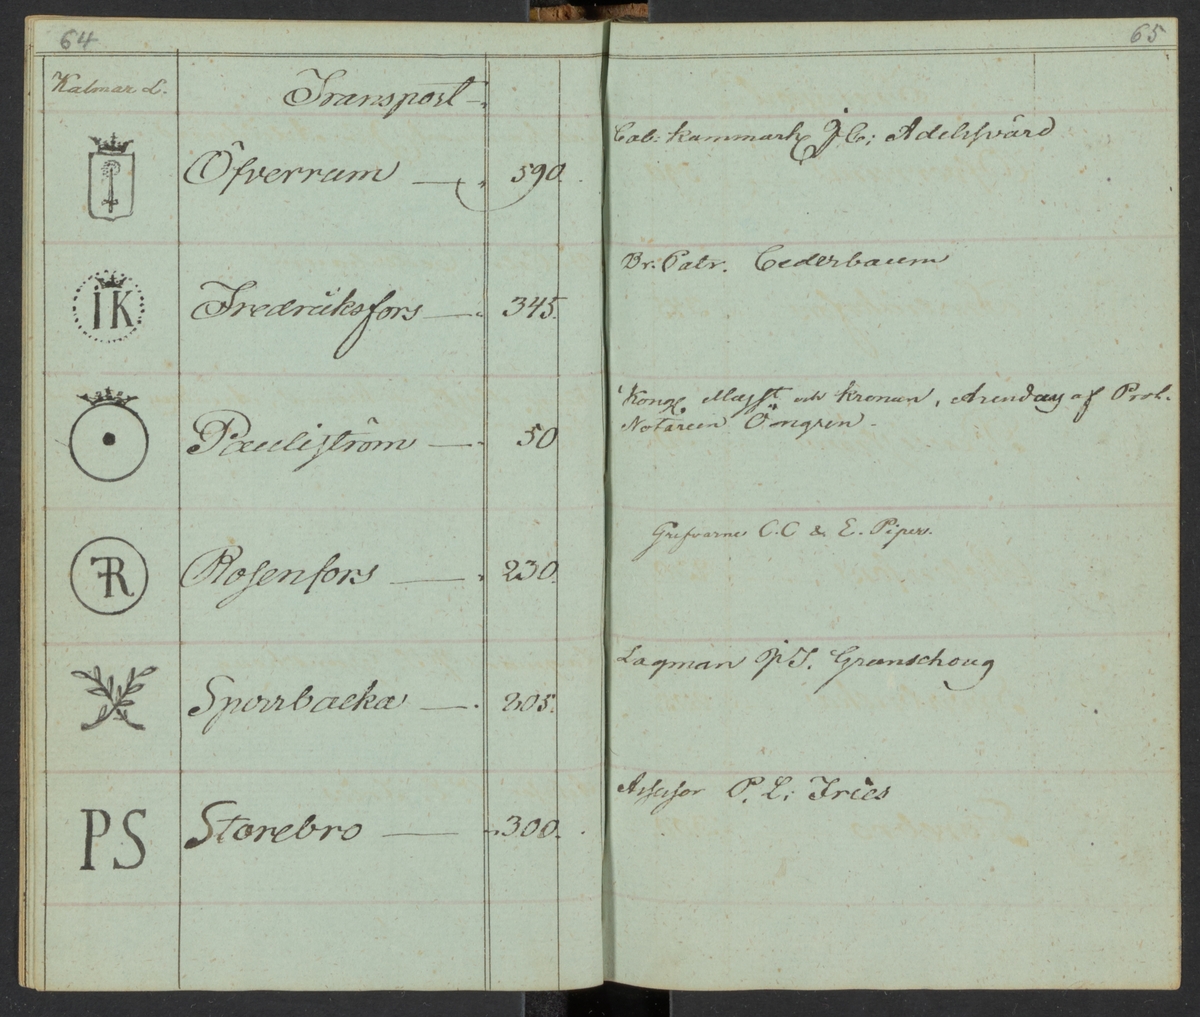 64
65
Kalmar L.
Transport
Öfverrum — 590.
Cab: Kammarh J C: Adelsvärd
IK
Fredriksfors — 345.
Br: Patr. Cederbaum
Pauliström — 50
Kongl. Majst och Kronan, Arenday af Prot.
Notarien Öngren.
R
Rosenfors — 230.
Grefvarne C. C & E. Pipers.
Sporrbacka — 205.
Lagman P S. Grenschoug
PS
Storebro — 300.
Assessor P. L: Fries